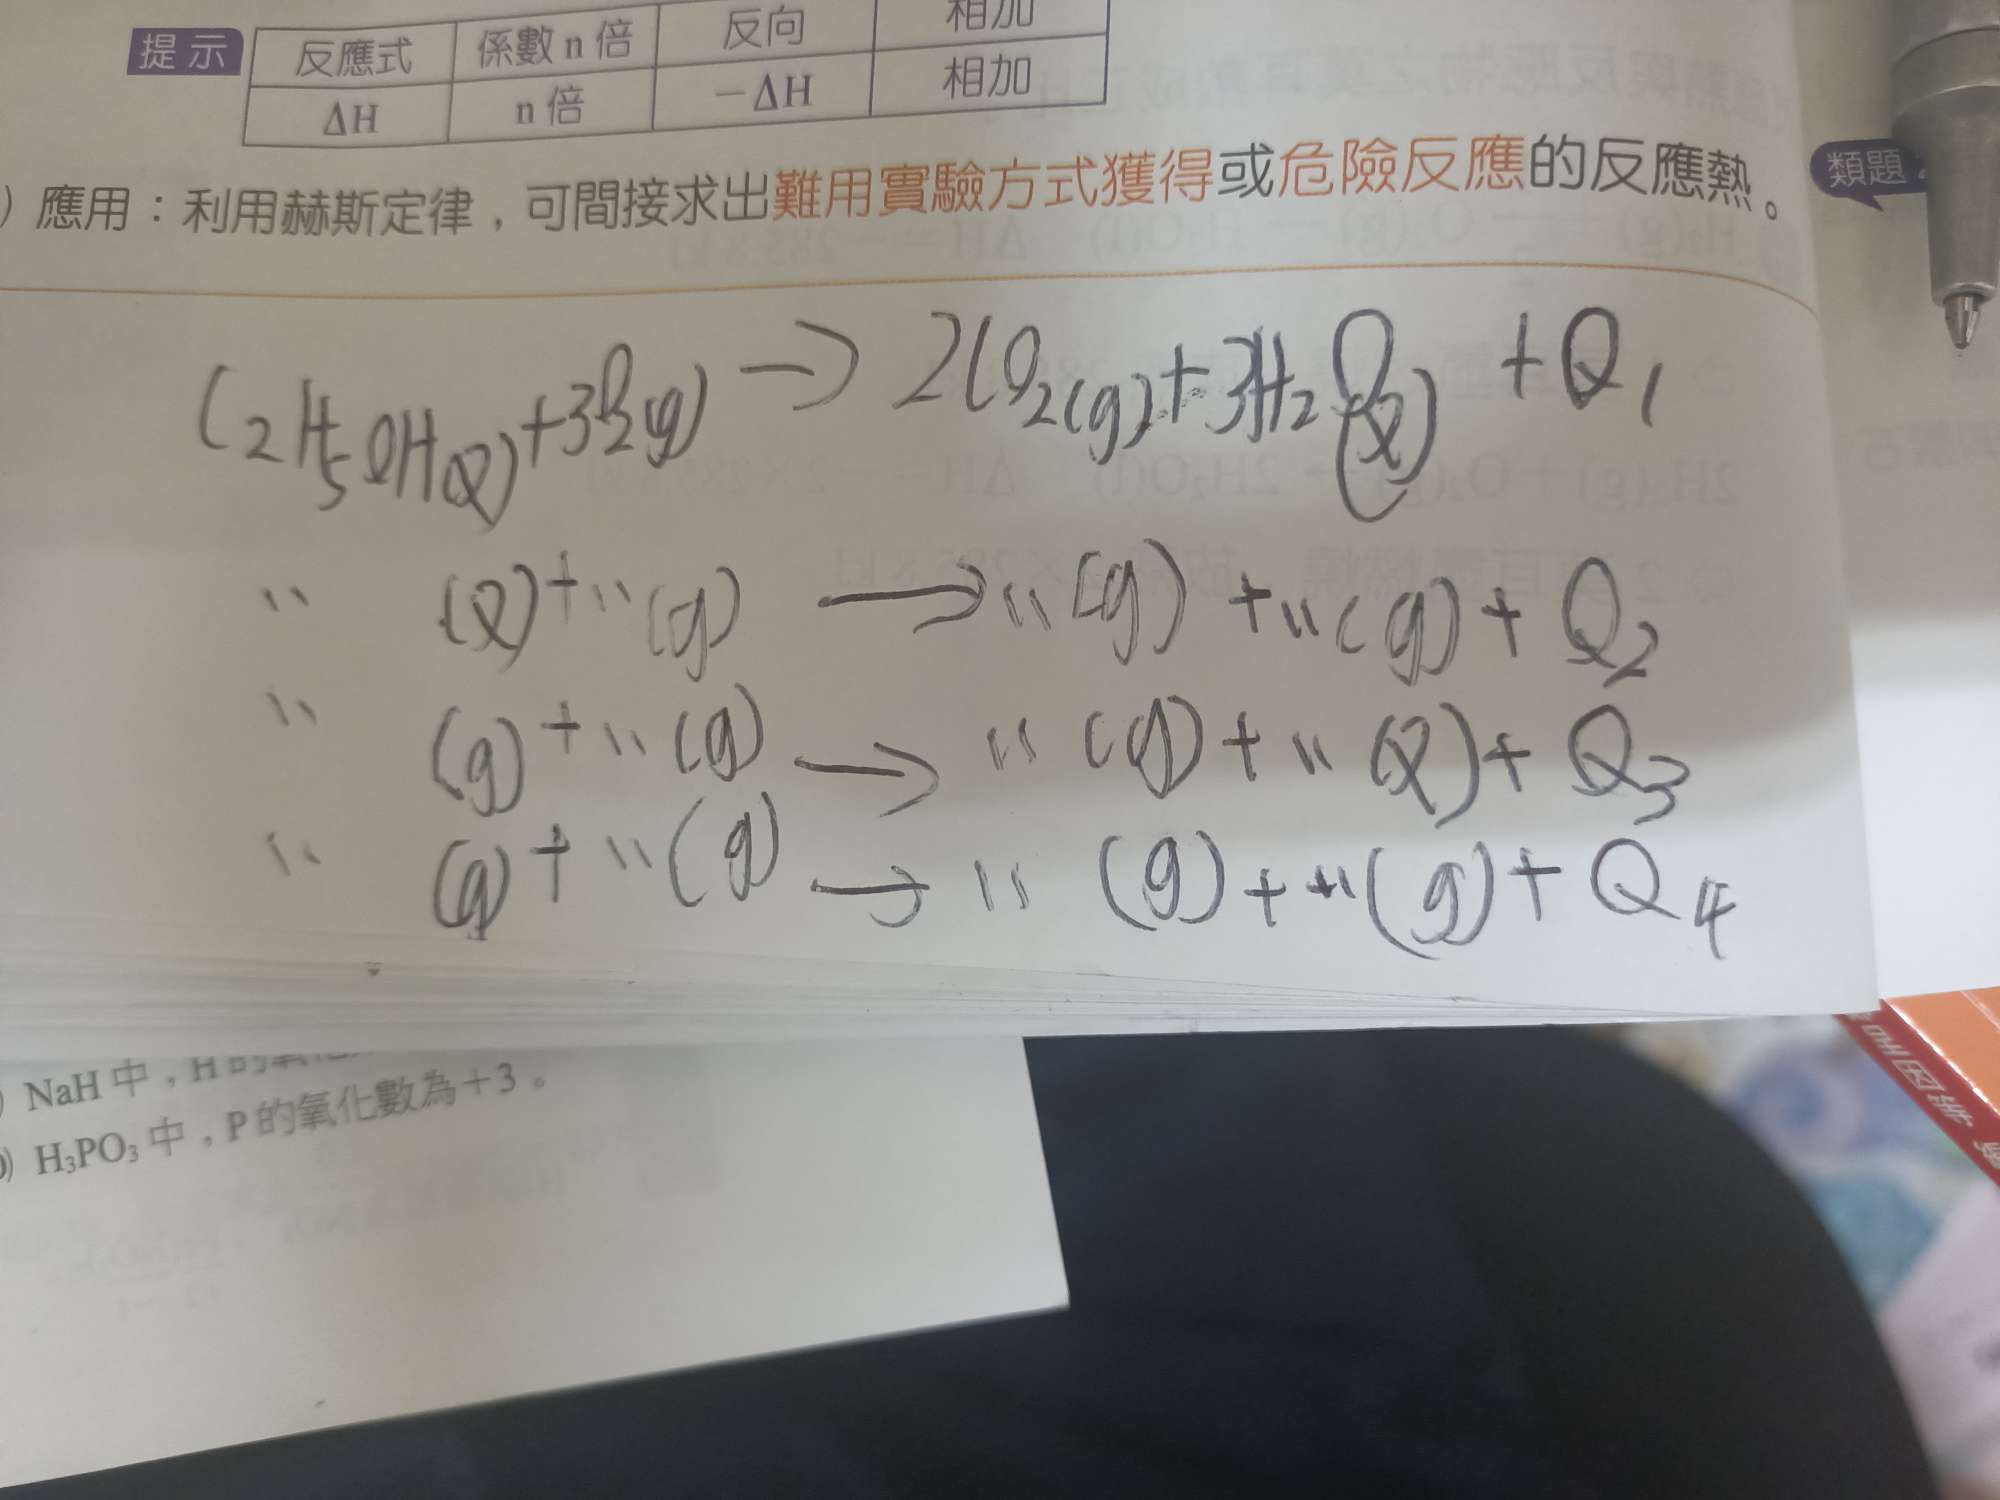 提示
反應式 係數 n 倍 反向 相加
ΔH n 倍 −ΔH 相加
) 應用：利用赫斯定律，可間接求出難用實驗方式獲得或危險反應的反應熱。
類題
C2H5OH(l)+3O2(g) → 2CO2(g)+3H2O(l) +Q1
〃 (l)+〃(g) → 〃(g) +〃(g)+ Q2
〃 (g)+〃(g) → 〃(g)+〃(l)+ Q3
〃 (g)+〃(g) → 〃(g)+〃(g)+ Q4
) NaH 中，H 的氧化
) H3PO3 中，P 的氧化數為+3。